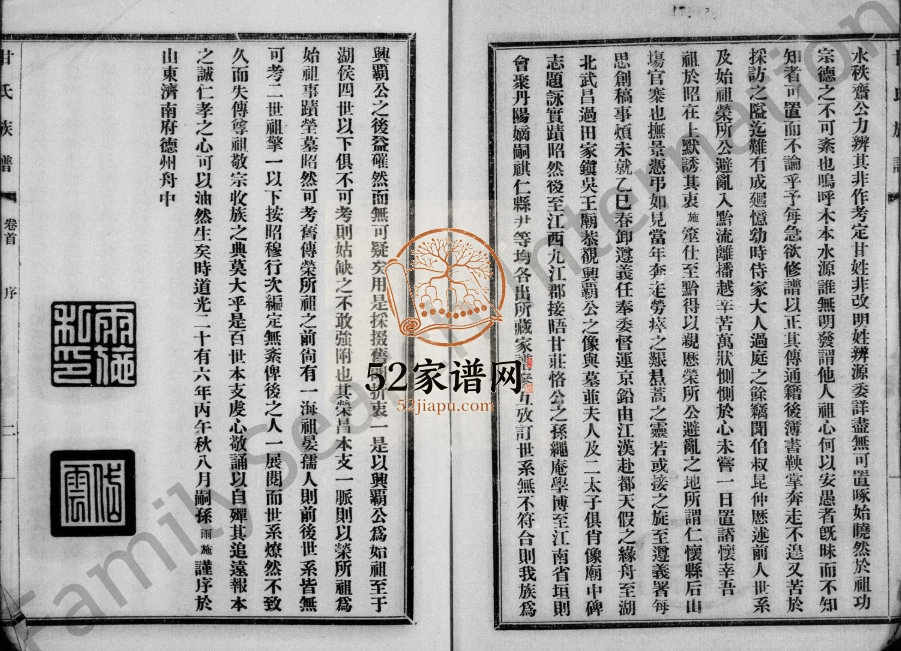 水秩齋公力辨其非作考定甘姓非改明姓辨源委詳盡無可置啄始曉然於祖功
宗德之不可紊也嗚呼木本水源誰無明發謂他人祖心何以安愚者旣昧而不知
知者可置而不論乎予每急欲修譜以正其傳通籍後簿書鞅掌奔走不遑又苦於
採訪之隘迄難有成廻憶幼時侍家大人過庭之餘竊聞伯叔昆仲歷述前人世系
及始祖榮所公避亂入黔流離播越辛苦萬狀惻惻於心未嘗一日置諸懷幸吾
祖於昭在上默誘其衷施筮仕至黔得以親歷榮所公避亂之地所謂仁懷縣后山
塲官寨也撫景憑弔如見當年奔走勞瘁之艱焄蒿之靈若或接之旋至遵義署每
思創稿事煩未就乙巳春卸遵義任奉委督運京鉛由江漢赴都天假之緣舟至湖
北武昌過田家鎮吳王廟恭覩興霸公之像與墓並夫人及二太子俱肖像廟中碑
志題詠實蹟昭然後至江西九江郡接晤甘莊恪公之孫繩庵學博至江南省垣則
會聚丹陽嫡嗣祺仁縣尹等均各出所藏家譜叅互攷訂世系無不符合則我族爲
興霸公之後益確然而無可疑矣用是採掇舊 折衷一是以興霸公爲始祖至于
湖侯四世以下俱不可考則姑缺之不敢強附也其榮昌本支一脈則以榮所祖爲
始祖事蹟塋墓昭然可考舊傳榮所祖之前尙有一海祖晏孺人則前後世系皆無
可考二世祖擎一以下按昭穆行次編定無紊俾後之人一展閱而世系燎然不致
久而失傳尊祖敬宗收族之典莫大乎是百世本支虔心敬誦以自殫其追遠報本
之誠仁孝之心可以油然生矣時道光二十有六年丙午秋八月嗣孫雨施謹序於
山東濟南府德州舟中
雨施私印
甘氏族譜
卷首
序
二
52家谱网
52jiapu.com
Family Search International